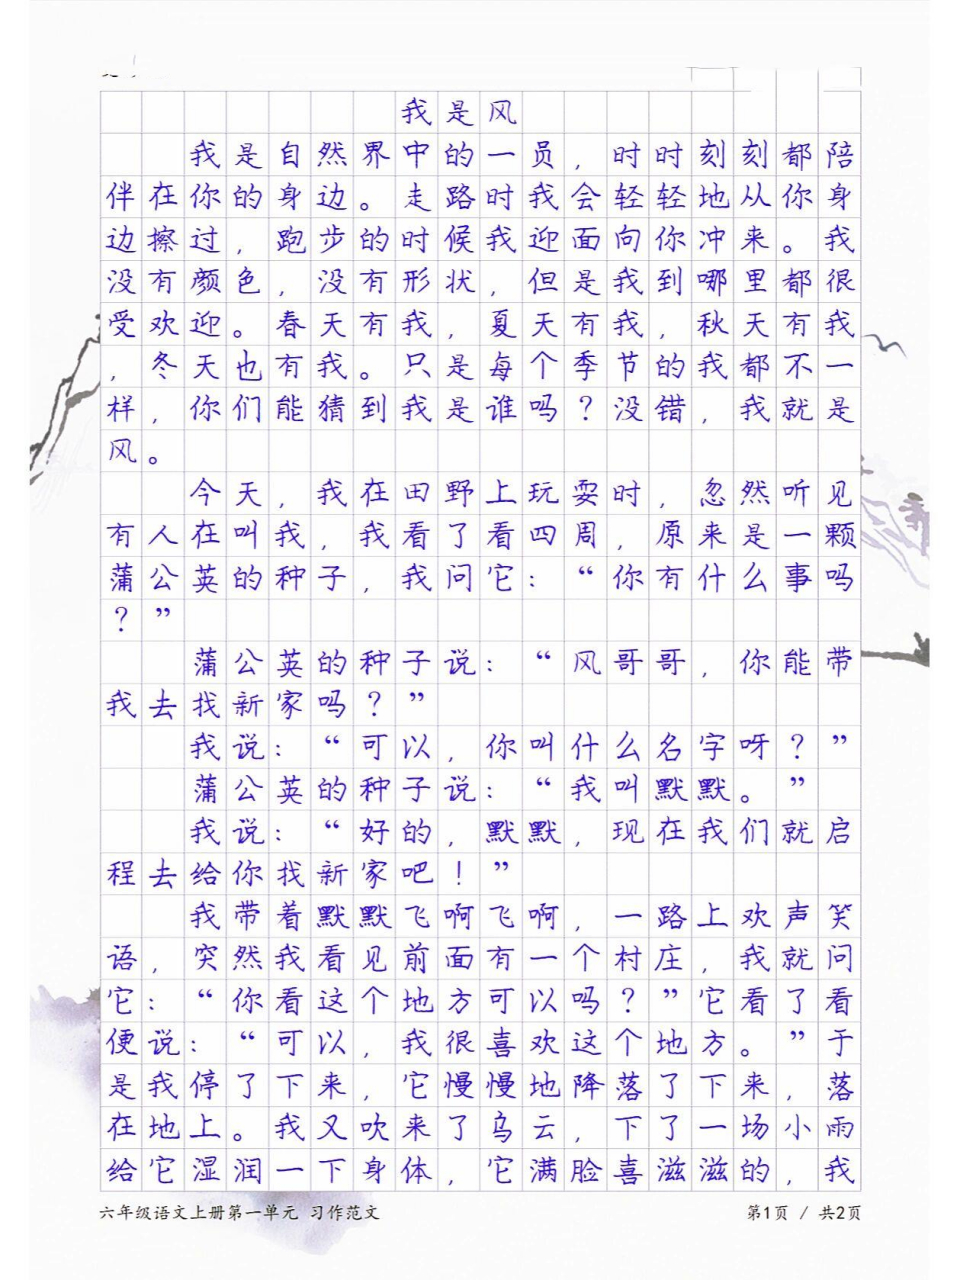 我是风
我是自然界中的一员，时时刻刻都陪
伴在你的身边。走路时我会轻轻地从你身
边擦过，跑步的时候我迎面向你冲来。我
没有颜色，没有形状，但是我到哪里都很
受欢迎。春天有我，夏天有我，秋天有我
，冬天也有我。只是每个季节的我都不一
样，你们能猜到我是谁吗？没错，我就是
风。
今天，我在田野上玩耍时，忽然听见
有人在叫我，我看了看四周，原来是一颗
蒲公英的种子，我问它：“你有什么事吗
？”
蒲公英的种子说：“风哥哥，你能带
我去找新家吗？”
我说：“可以，你叫什么名字呀？”
蒲公英的种子说：“我叫默默。”
我说：“好的，默默，现在我们就启
程去给你找新家吧！”
我带着默默飞啊飞啊，一路上欢声笑
语，突然我看见前面有一个村庄，我就问
它：“你看这个地方可以吗？”它看了看
便说：“可以，我很喜欢这个地方。”于
是我停了下来，它慢慢地降落了下来，落
在地上。我又吹来了乌云，下了一场小雨
给它湿润一下身体，它满脸喜滋滋的，我
六年级语文上册第一单元 习作范文
第1页 / 共2页